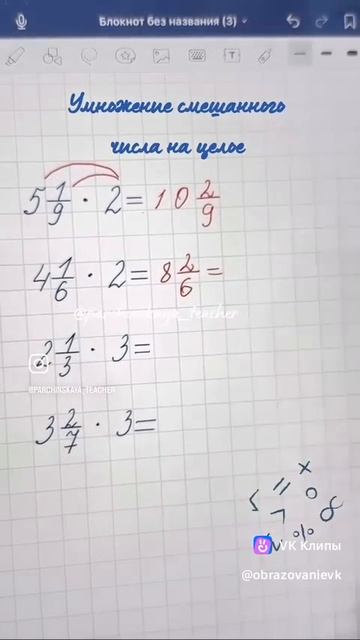 Блокнот без названия (3)
Умножение смешанного
числа на целое
5 1/9 · 2 = 10 2/9
4 1/6 · 2 = 8 2/6 =
@parchinskaya_teacher
2 1/3 · 3 =
@PARCHINSKAYA_TEACHER
3 2/7 · 3 =
VK Клипы
@obrazovanievk